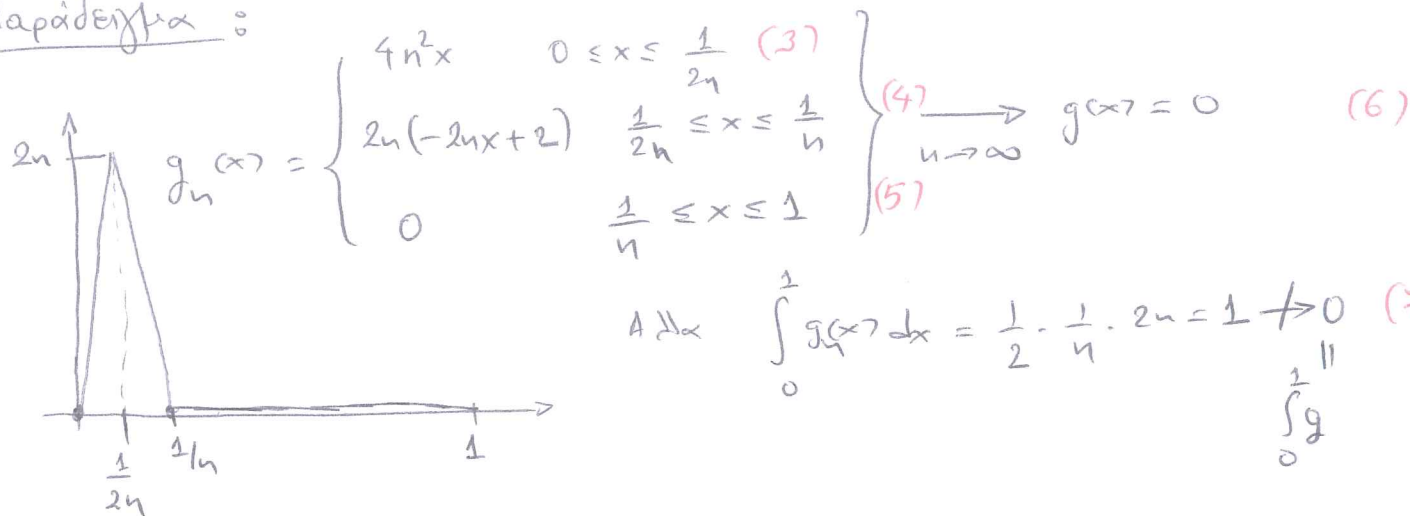 Παράδειγμα :
g_n(x) = { 4n²x 0 ≤ x ≤ 1/2n (3)
2n(-2nx+2) 1/2n ≤ x ≤ 1/n (4)
0 1/n ≤ x ≤ 1 (5) } ⟶ n→∞ g(x) = 0 (6)
2n
Αλλα ∫₀¹ g_n(x) dx = 1/2 · 1/n · 2n = 1 ↛ 0
||
∫₀¹ g
1/2n 1/n 1